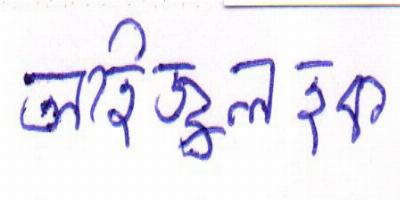 আইজুল হক